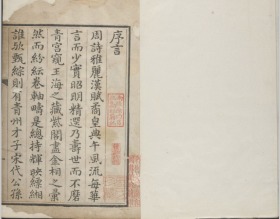 序言
周詩雅麗漢賦喬皇典午風流每華
言而少實昭明精選乃壽世而不磨
青宮窺玉海之藏紫閣盡金相之彙
然而紛紜卷軸疇是總持輝映縹緗
誰歟甄綜則有青州才子宋代公孫